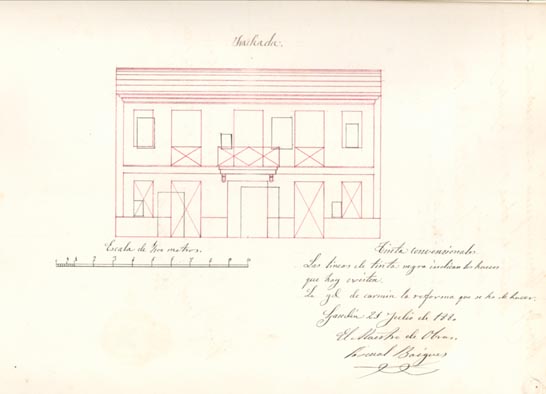 Fachada.
Escala de metros.
1 2 3 4 5 6 7 8 9
Tinta convencional.
Las lineas de tinta negra indican los huecos
que hoy existen.
La id. de carmin la reforma que se ha de hacer.
Gandia 21 Julio de
El Maestro de Obras